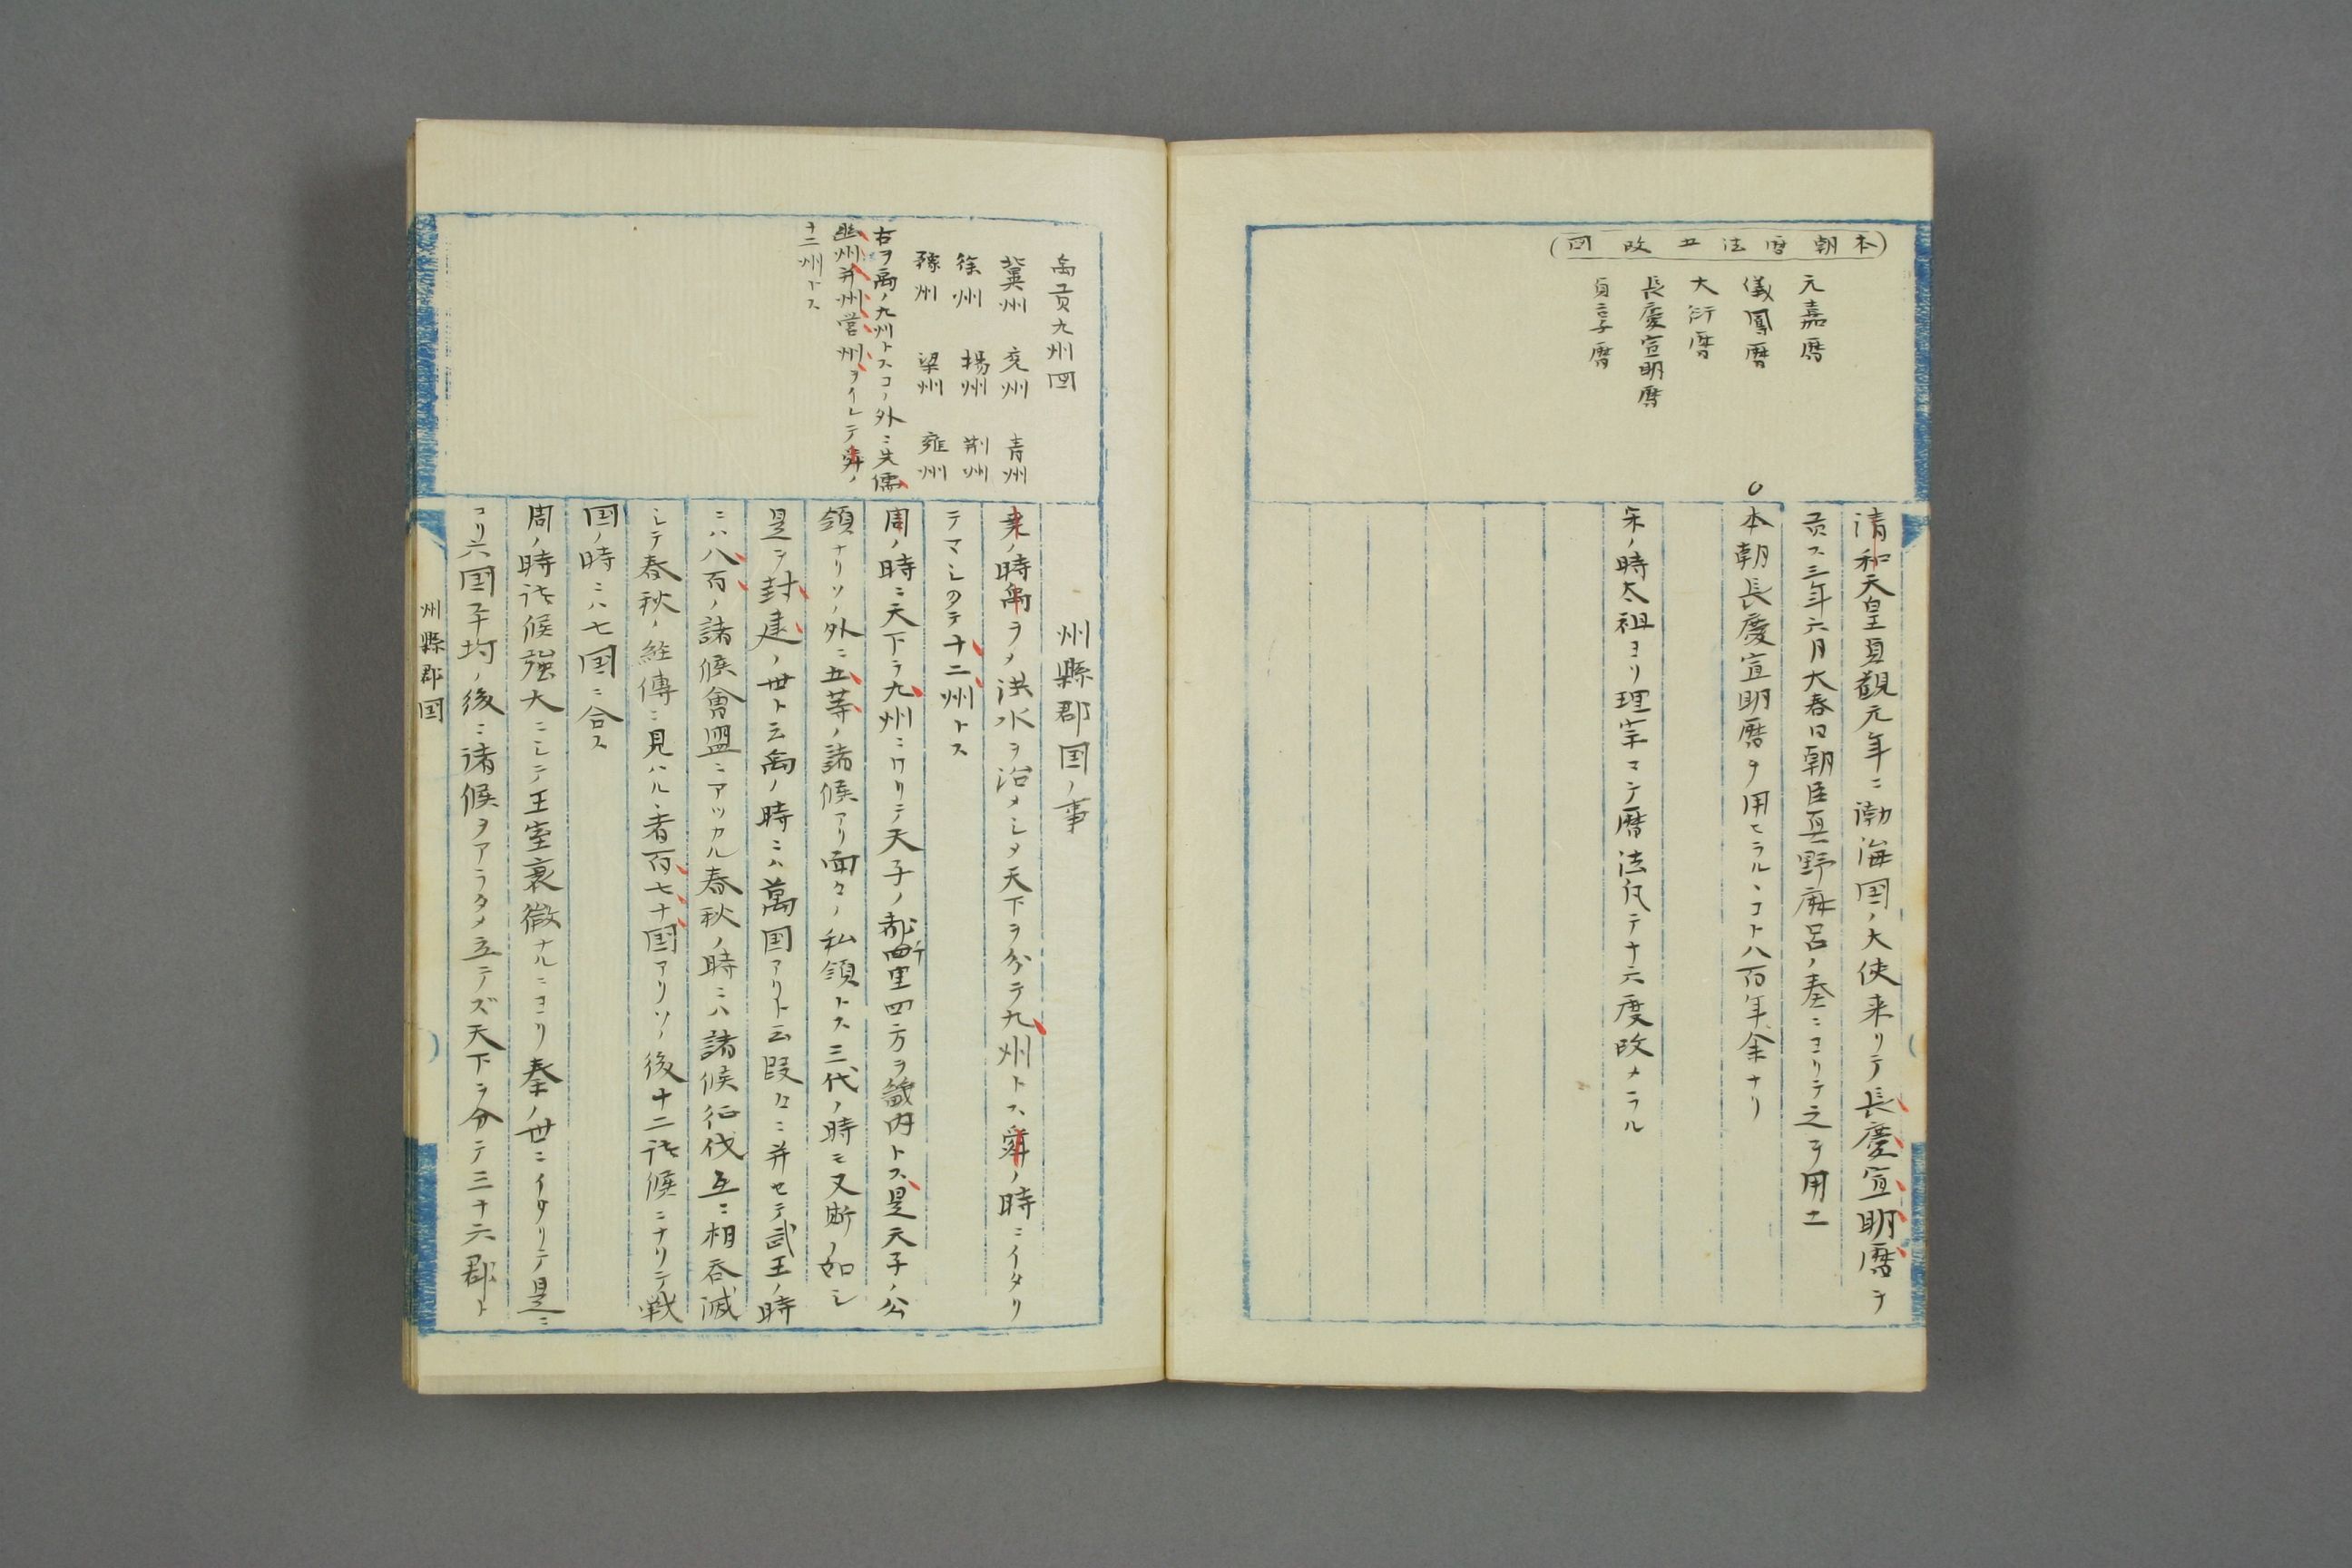 本朝暦法五改図
元嘉暦
儀鳳暦
大衍暦
長慶宣明暦
貞享暦
清和天皇貞観元年ニ渤海国ノ大使来リテ長慶宣明暦ヲ
貢ス三年六月大春日朝臣真野麻呂ノ奏ニヨリテ之ヲ用ユ
○本朝長慶宣明暦ヲ用ヒラルヽコト八百年余ナリ
宋ノ時太祖ヨリ理宗マデ暦法凡テ十六度改メラル
禹貢九州図
冀州 兗州 青州
徐州 揚州 荊州
豫州 梁州 雍州
右ヲ禹ノ九州トスコノ外ニ先儒
幽州并州営州ヲイレテ舜ノ
十二州トス
州縣郡国ノ事
尭ノ時禹ヲメ洪水ヲ治メシメ天下ヲ分テ九州トス舜ノ時ニイタリ
テマシタテ十二州トス
周ノ時ニ天下ヲ九州ニワリテ天子ノ都千里四方ヲ畿内トス是天子ノ公
領ナリソノ外ニ五等ノ諸候アリ面々ノ私領トス三代ノ時モ又斯ノ如シ
是ヲ封建ノ世ト云禹ノ時ニハ萬国アリト云段々ニ并セテ武王ノ時
ニハ八百ノ諸候會盟ニアツカル春秋ノ時ニハ諸候征伐互ニ相呑滅
シテ春秋ノ経傳ニ見ハルヽ者百七十国アリソノ後十二諸候ニナリテ戦
国ノ時ニハ七国ニ合ス
周ノ時諸候強大ニシテ王室衰微ナルニヨリ秦ノ世ニイタリテ是ニ
コリ六国平均ノ後ニ諸候ヲアラタメ立テズ天下ヲ分テ三十六郡ト
州縣郡国